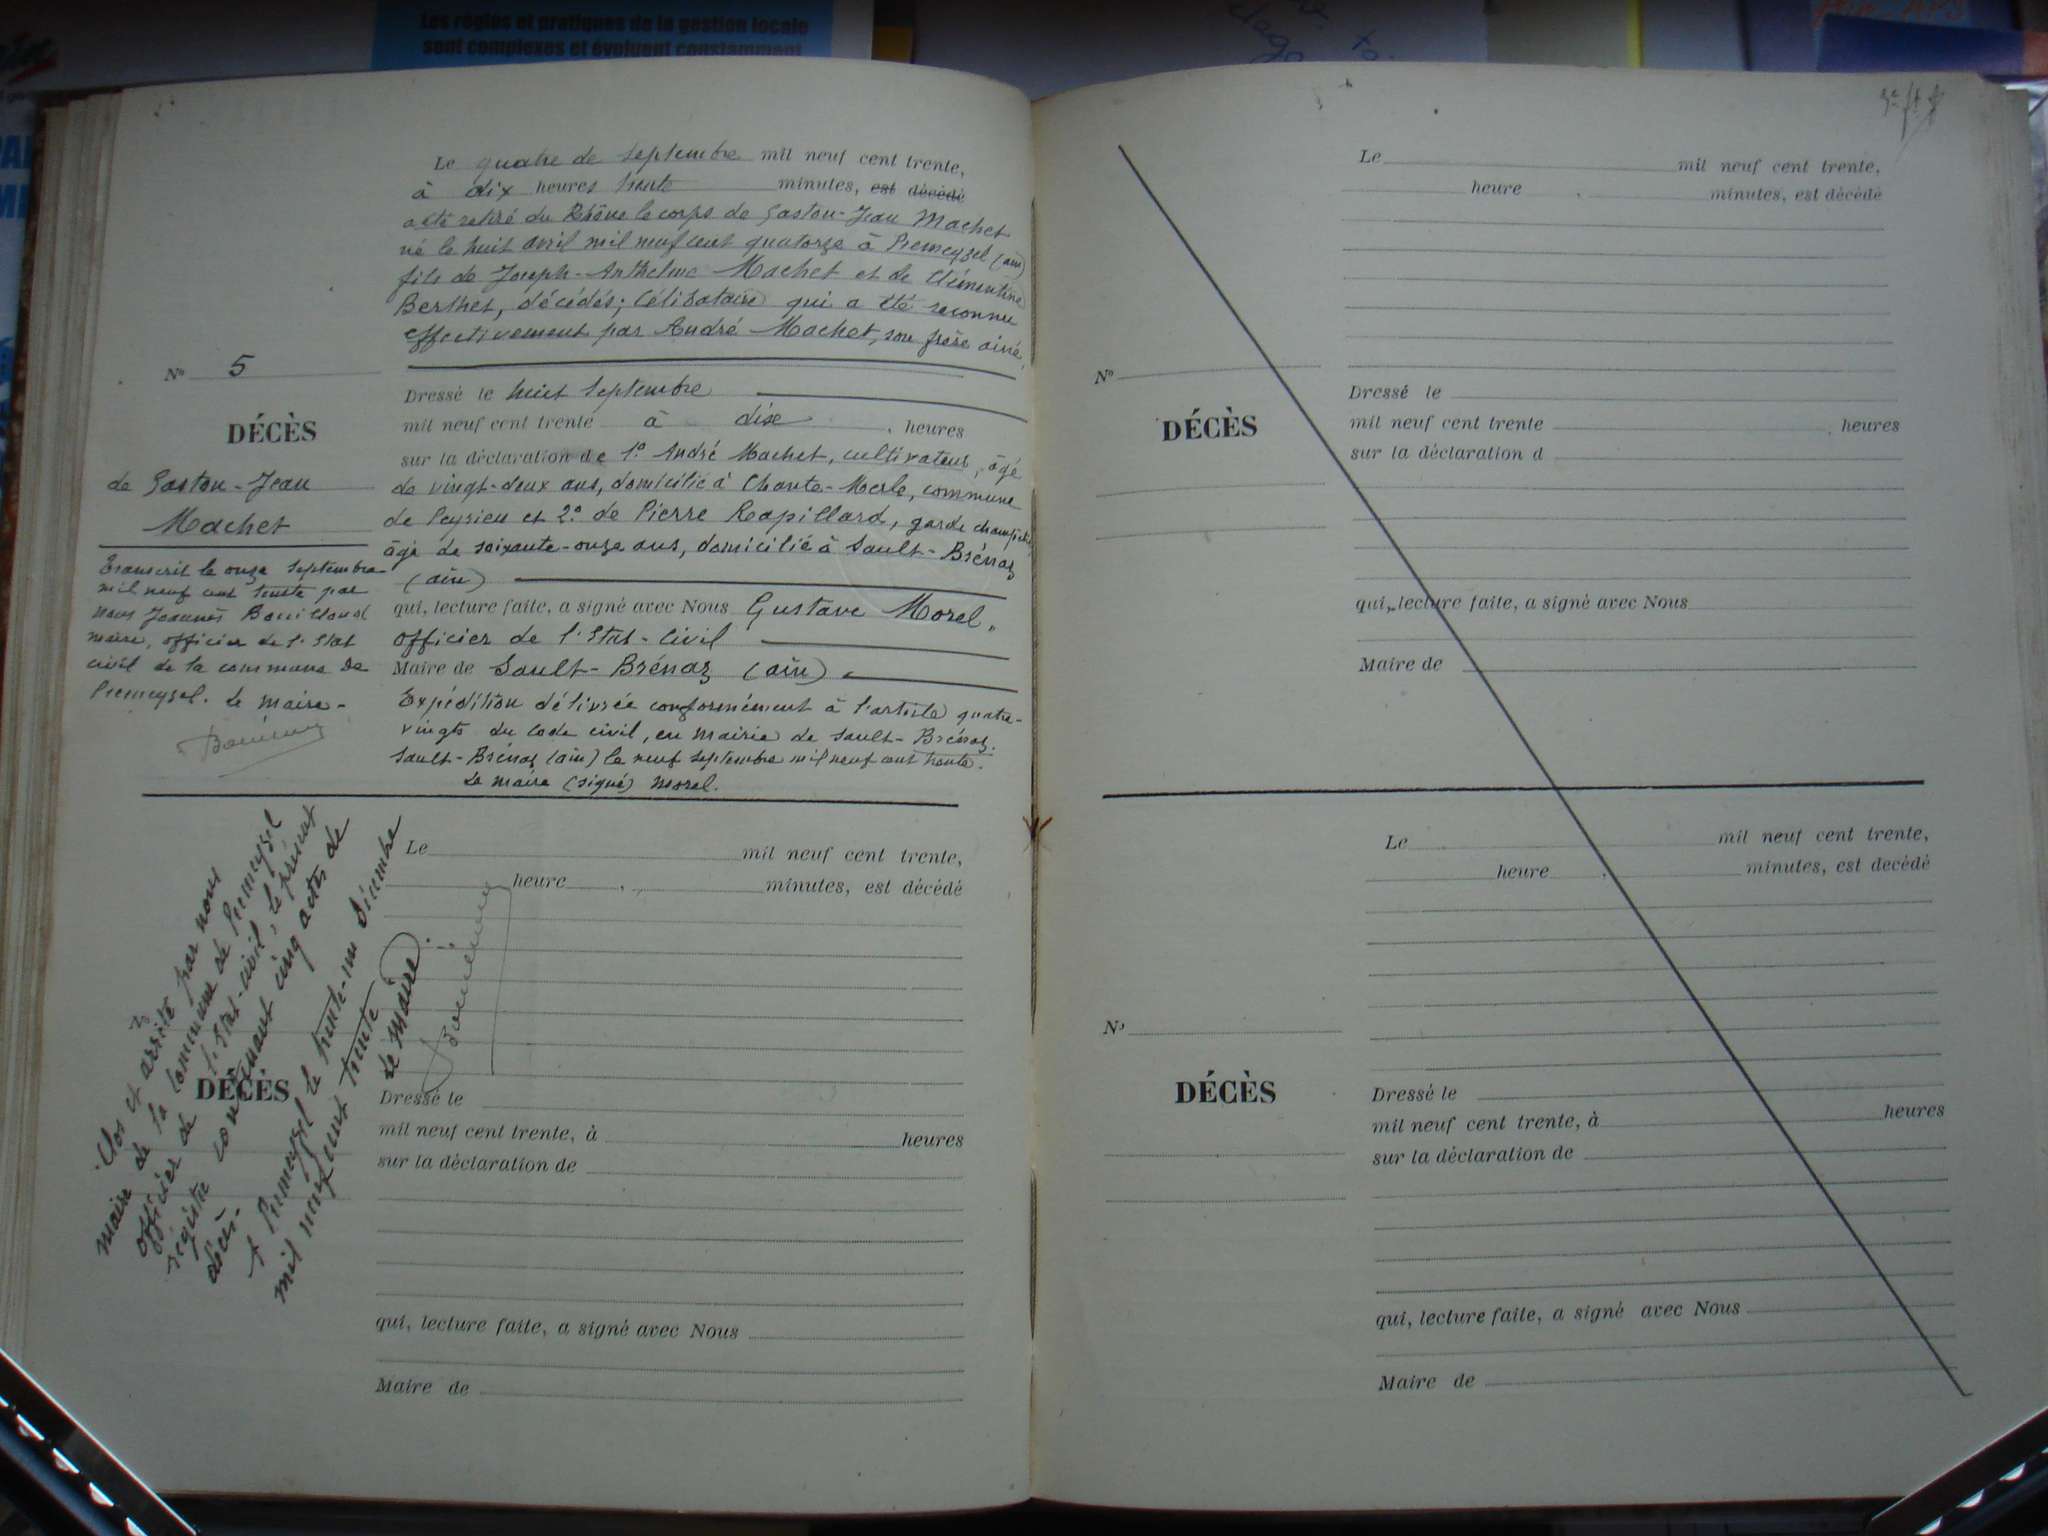 Les règles et pratiques de la gestion locale
sont complexes et évoluent constamment
Le quatre de Septembre mil neuf cent trente,
à dix heures trente minutes, est décédé
a été retiré du Rhône le corps de Gaston-Jean Machet
né le huit avril mil neuf cent quatorze à Premeyzel (ain)
fils de Joseph-Anthelme Machet et de Clémentine
Berthet, décédés; Célibataire qui a été reconnu
effectivement par André Machet, son frère ainé,
No 5
DÉCÈS
de Gaston-Jean
Machet
Transcrit le onze Septembre
mil neuf cent trente par
nous Joannès Bouilloud
maire, officier de l'Etat
civil de la commune de
Premeyzel. Le maire-
Dressé le huit Septembre
mil neuf cent trente à dix heures
sur la déclaration de 1º André Machet, cultivateur, âgé
de vingt-deux ans, domicilié à Chante-Merle, commune
de Peyrieu et 2º de Pierre Reapillard, garde champêtre,
âgé de soixante-onze ans, domicilié à Sault-Brénaz
(ain)
qui, lecture faite, a signé avec Nous Gustave Morel,
officier de l'Etat-Civil
Maire de Sault-Brénaz (ain)
Expédition délivrée conformément à l'article quatre-
vingts du Code civil, en mairie de Sault-Brénaz.
Sault-Brénaz (ain) le neuf Septembre mil neuf cent trente.
Le maire (signé) Morel.
Clos et arrêté par nous
maire de la commune de Premeyzel
officier de l'Etat-civil, le présent
registre contenant cinq actes de
décès-
A Premeyzel le trente-un Décembre
mil neuf cent trente
Le Maire:
Le mil neuf cent trente,
heure minutes, est décédé
DÉCÈS
Dressé le
mil neuf cent trente, à heures
sur la déclaration de
qui, lecture faite, a signé avec Nous
Maire de
Le mil neuf cent trente,
heure minutes, est décédé
No
DÉCÈS
Dressé le
mil neuf cent trente heures
sur la déclaration d
qui, lecture faite, a signé avec Nous
Maire de
Le mil neuf cent trente,
heure minutes, est décédé
No
DÉCÈS
Dressé le
mil neuf cent trente, à heures
sur la déclaration de
qui, lecture faite, a signé avec Nous
Maire de